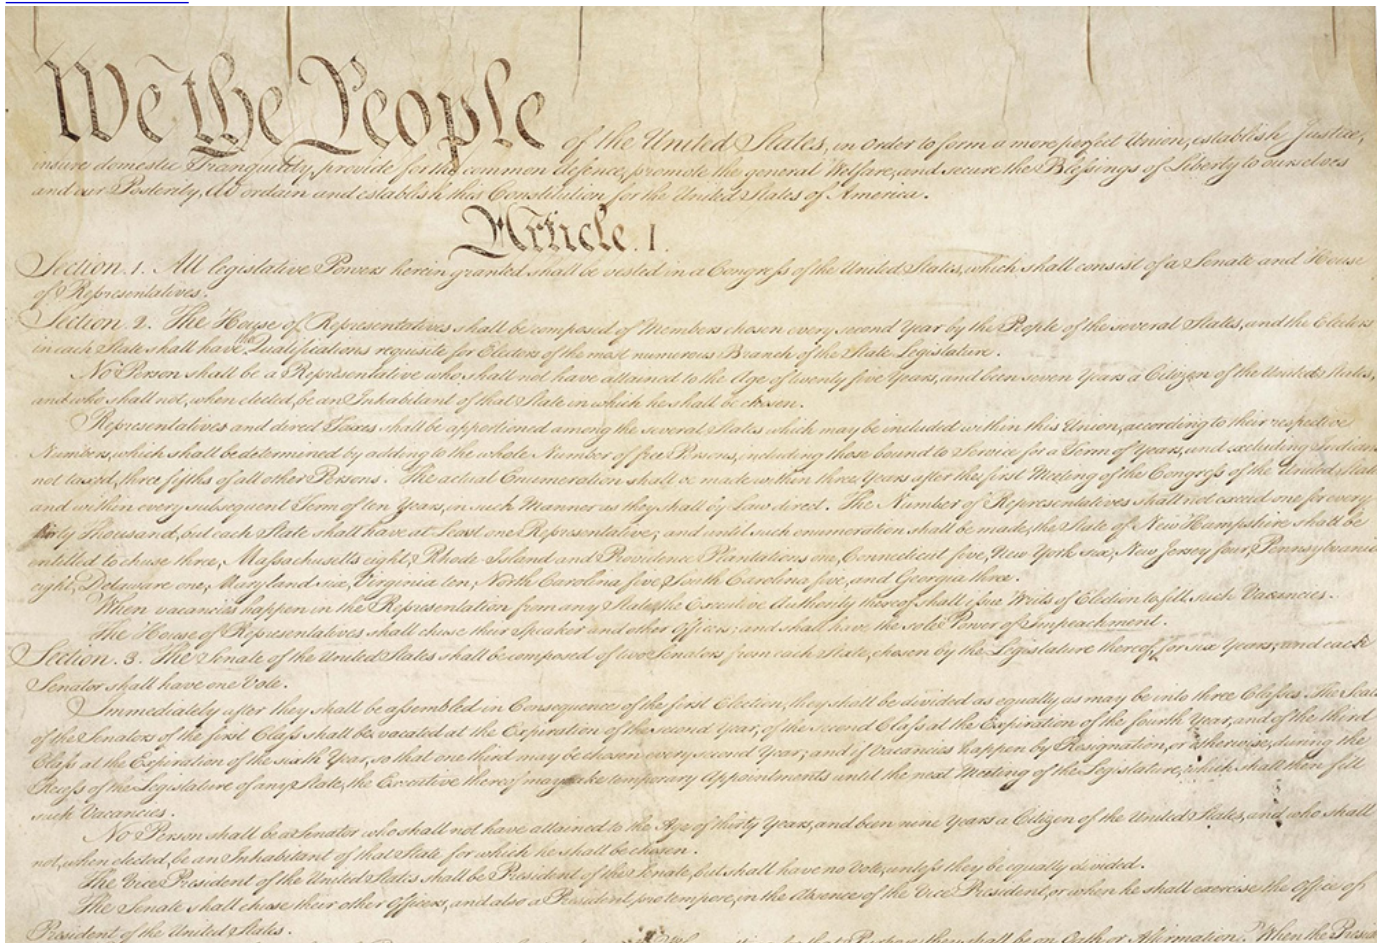 We the People of the United States, in Order to form a more perfect Union, establish Justice,
insure domestic Tranquility, provide for the common defence, promote the general Welfare, and secure the Blessings of Liberty to ourselves
and our Posterity, do ordain and establish this Constitution for the United States of America.
Article. I.
Section. 1. All legislative Powers herein granted shall be vested in a Congress of the United States, which shall consist of a Senate and House
of Representatives.
Section. 2. The House of Representatives shall be composed of Members chosen every second Year by the People of the several States, and the Electors
in each State shall have the Qualifications requisite for Electors of the most numerous Branch of the State Legislature.
No Person shall be a Representative who shall not have attained to the Age of twenty five Years, and been seven Years a Citizen of the United States,
and who shall not, when elected, be an Inhabitant of that State in which he shall be chosen.
Representatives and direct Taxes shall be apportioned among the several States which may be included within this Union, according to their respective
Numbers, which shall be determined by adding to the whole Number of free Persons, including those bound to Service for a Term of Years, and excluding Indians
not taxed, three fifths of all other Persons. The actual Enumeration shall be made within three Years after the first Meeting of the Congress of the United States,
and within every subsequent Term of ten Years, in such Manner as they shall by Law direct. The Number of Representatives shall not exceed one for every
thirty Thousand, but each State shall have at Least one Representative; and until such enumeration shall be made, the State of New Hampshire shall be
entitled to chuse three, Massachusetts eight, Rhode Island and Providence Plantations one, Connecticut five, New York six, New Jersey four, Pennsylvania
eight, Delaware one, Maryland six, Virginia ten, North Carolina five, South Carolina five, and Georgia three.
When vacancies happen in the Representation from any State, the Executive Authority thereof shall issue Writs of Election to fill such Vacancies.
The House of Representatives shall chuse their Speaker and other Officers; and shall have the sole Power of Impeachment.
Section. 3. The Senate of the United States shall be composed of two Senators from each State, chosen by the Legislature thereof, for six Years; and each
Senator shall have one Vote.
Immediately after they shall be assembled in Consequence of the first Election, they shall be divided as equally as may be into three Classes. The Seats
of the Senators of the first Class shall be vacated at the Expiration of the second Year, of the second Class at the Expiration of the fourth Year, and of the third
Class at the Expiration of the sixth Year, so that one third may be chosen every second Year; and if Vacancies happen by Resignation, or otherwise, during the
Recess of the Legislature of any State, the Executive thereof may make temporary Appointments until the next Meeting of the Legislature, which shall then fill
such Vacancies.
No Person shall be a Senator who shall not have attained to the Age of thirty Years, and been nine Years a Citizen of the United States, and who shall
not, when elected, be an Inhabitant of that State for which he shall be chosen.
The Vice President of the United States shall be President of the Senate, but shall have no Vote, unless they be equally divided.
The Senate shall chuse their other Officers, and also a President pro tempore, in the Absence of the Vice President, or when he shall exercise the Office of
President of the United States.
they shall be on Oath or Affirmation. When the